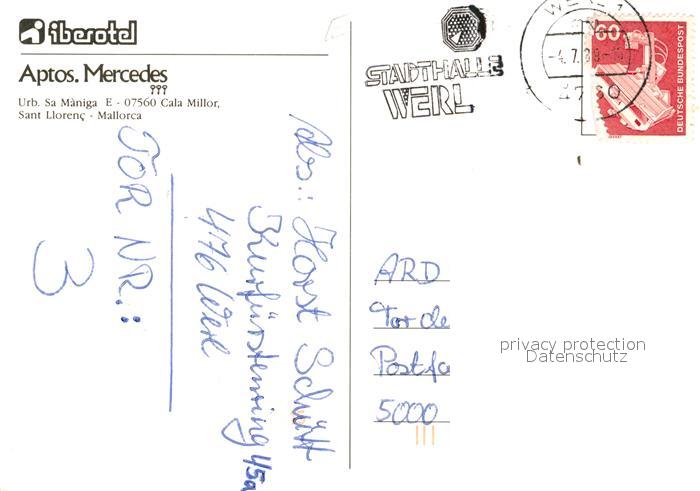 iberotel
Aptos. Mercedes
Urb. Sa Màniga E - 07560 Cala Millor,
Sant Llorenç - Mallorca
TOR NR.:
3
Abs.: Horst Schütt
Kurfürstenring 45a
476 Werl
STADTHALLE
WERL
WERL 1
-4.7.89
4760
60
DEUTSCHE BUNDESPOST
ARD
Tor de
Postfa
5000
privacy protection
Datenschutz